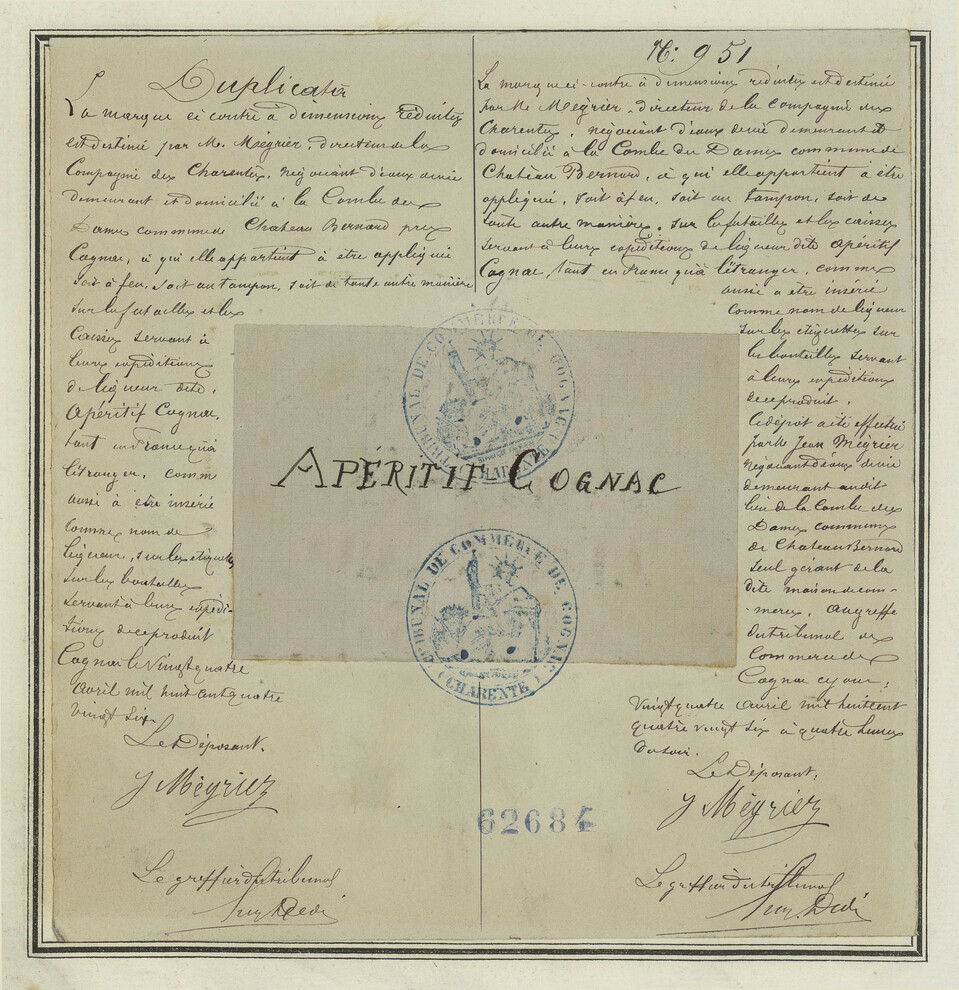 Duplicata
La marque ci contre à dimensions réduites
est destiné par Mr. Mégrier, directeur de la
Compagnie des Charentes, négociant d'eaux devie
demeurant et domicilié à la Combe des
Dames commune de Chateau Bernard près
Cognac, à qui elle appartient à être appliquée
soit à feu, soit au tampon, soit de toute autre manière
sur les futailles et les
caisses servant à
leurs expéditions
de liqueur dite,
Apéritif Cognac,
tant en France qu'à
l'étranger, comme
aussi à être inséré
comme nom de
liqueur, sur les etiquettes
sur les bouteilles
servant à leurs expédi-
tions de ce produit
Cognac le Vingt quatre
avril mil huit cent quatre
vingt six
Le Déposant,
J Mégrier
Le greffier du tribunal
N: 951
La marque ci-contre à dimensions réduites est destiné
par Mr Mégrier, directeur de la Compagnie des
Charentes, négociant d'eaux devie demeurant et
domicilié à la Combe des Dames commune de
Chateau Bernard, à qui elle appartient à être
appliquée, soit à feu, soit au tampon, soit de
toute autre manière, sur les futailles et les caisses
servant à leurs expéditions de liqueur dite Apéritif
Cognac, tant en France qu'à l'étranger, comme
aussi a etre inséré
comme nom de liqueur
sur les etiquettes sur
les bouteilles servant
à leurs expéditions
de ce produit.
Ce dépot a été effectué
par Mr Jean Mégrier
négociant d'eaux devie
demeurant au dit
lieu de la Combe des
Dames commune
de Chateau Bernard
seul gérant de la
dite maison de com-
merce, au greffe
du tribunal de
Commerce de
Cognac ce jour,
Vingt quatre avril mil huit cent
quatre vingt six à quatre heures
du soir.
Le Déposant,
J Mégrier
Le greffier du tribunal
TRIBUNAL DE COMMERCE DE COGNAC
(CHARENTE)
APÉRITIF COGNAC
TRIBUNAL DE COMMERCE DE COGNAC
(CHARENTE)
62684